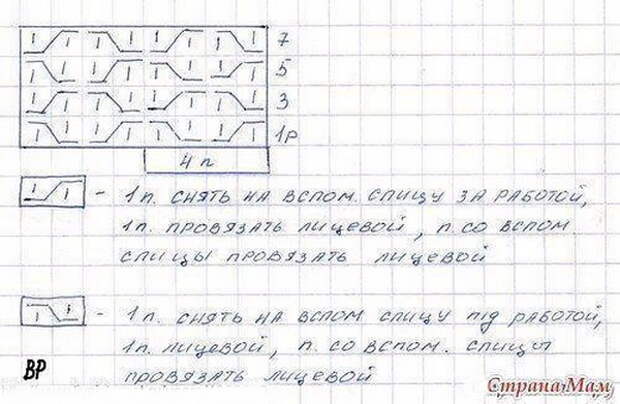 1 1 1 1 1 1 1 1 7
1 1 1 1 1 1 1 1 5
1 1 1 1 1 1 1 1 3
1 1 1 1 1 1 1 1 1р
4 п
1 1 - 1п. снять на вспом. спицу за работой,
1п. провязать лицевой, п. со вспом.
спицы провязать лицевой
1 1 - 1п. снять на вспом спицу під работой,
1п. лицевой, п. со вспом. спицы
провязать лицевой
ВР
Страна Мам